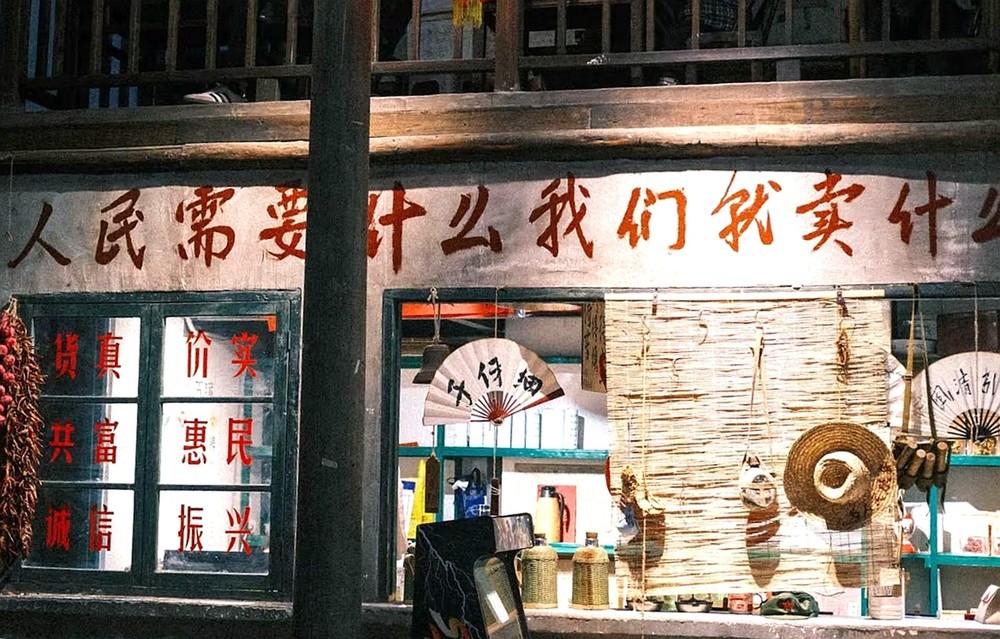 人民需要什么我们就卖什么
货真 价实
共富 惠民
诚信 振兴
细伢子